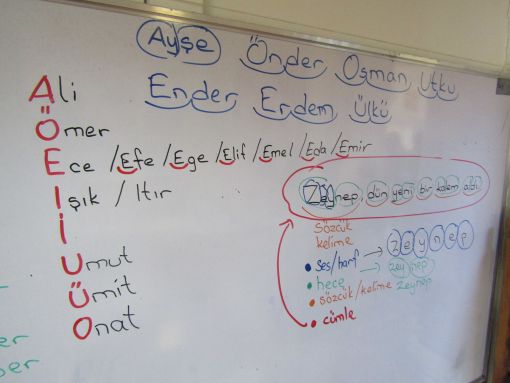 Ayşe Önder Osman Utku
Ender Erdem Ülkü
Ali
Ömer
Ece /Efe /Ege /Elif /Emel /Eda /Emir
Işık / Itır
İ
Umut
Ümit
Onat
Zeynep, dün yeni bir kalem aldı.
sözcük
kelime
• ses/harf → Z e y n e p
• hece → zey nep
• sözcük/kelime Zeynep
• cümle